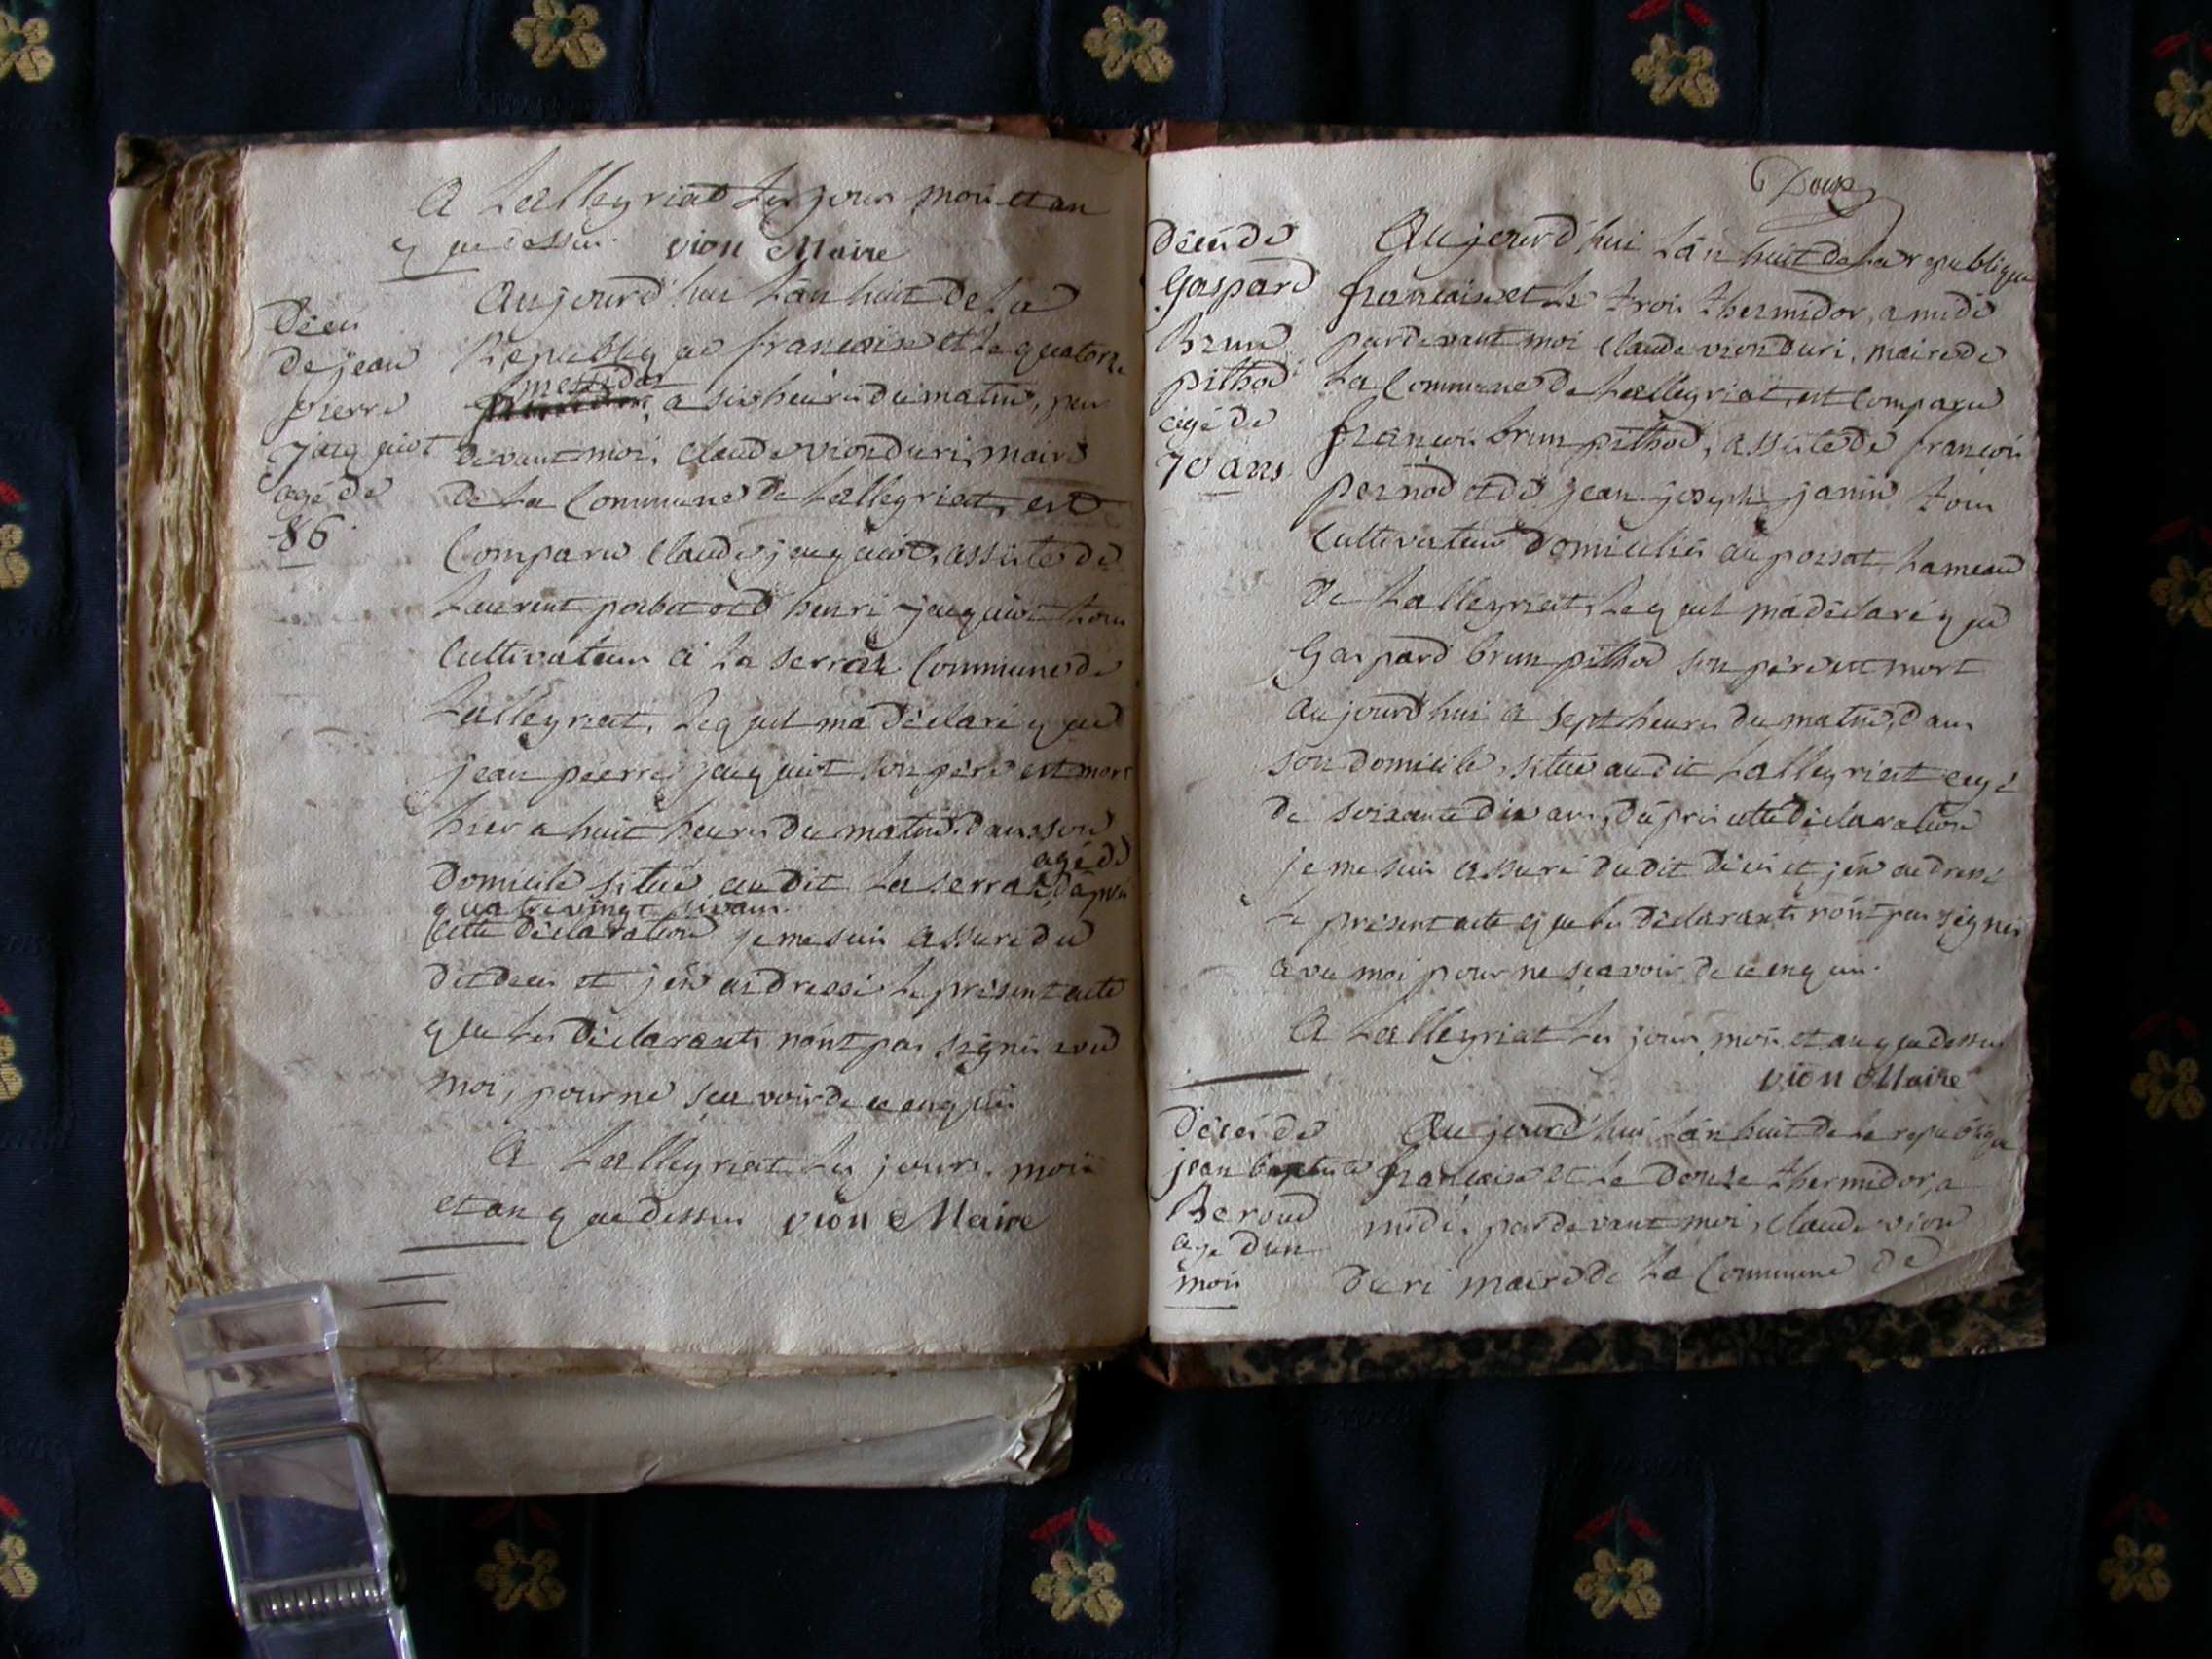 A Lalleyriat les jour mois et an
que dessus. vion Maire
Décès
de jean
pierre
jacquiot
agé de
86.
Aujourd'hui l'an huit de la
Republique francoise et le quatorze
messidor
a six heures du matin, par
devant moi, claude vion duri, maire
de la Commune de Lalleyriat, est
Comparu claude jacquiot, assisté de
Laurent poebet et d'henri jacquiot tous
Cultivateurs à la serraz Commune de
Lalleyriat, lequel m'a déclaré que
jean pierre jacquiot son père est mort
hier a huit heures du matin, dans son
agé de
Domicile situé au dit la serraz, d'après
quatre vingt six ans.
Cette déclaration je me suis assuré du
dit deces et j'en ai dressé le présent acte
que les déclarants n'ont pas signés avec
moi, pour ne sçavoir de ce enquis
A Lalleyriat les jour, mois
et an que dessus vion Maire
Douze
Décès de
Gaspard
Brun
pilhod
agé de
70 ans
Aujourd'hui l'an huit de la republique
francoise et le trois thermidor, a midi
pardevant moi claude vion duri, maire de
la Commune de Lalleyriat, est Comparu
françois brun pilhod, assisté de françois
pernod et de jean joseph janin tous
Cultivateurs domiciliés au poisat, hameau
de Lalleyriat, lequel m'a déclaré que
Gaspard brun pilhod son père est mort
aujourd'hui a sept heures du matin, dans
son domicile, situé au dit Lalleyriat agé
de soixante dix ans, d'après cette déclaration
je me suis assuré du dit décès et j'en ai dressé
le présent acte que les déclarants n'ont pas signés
avec moi pour ne sçavoir de ce enquis.
A Lalleyriat les jour, mois et an que dessus
vion Maire
Décès de
jean baptiste
Beroud
age d'un
mois
Aujourd'hui l'an huit de la republique
francoise et le douze thermidor, a
midi, pardevant moi, claude vion
duri maire de la Commune de